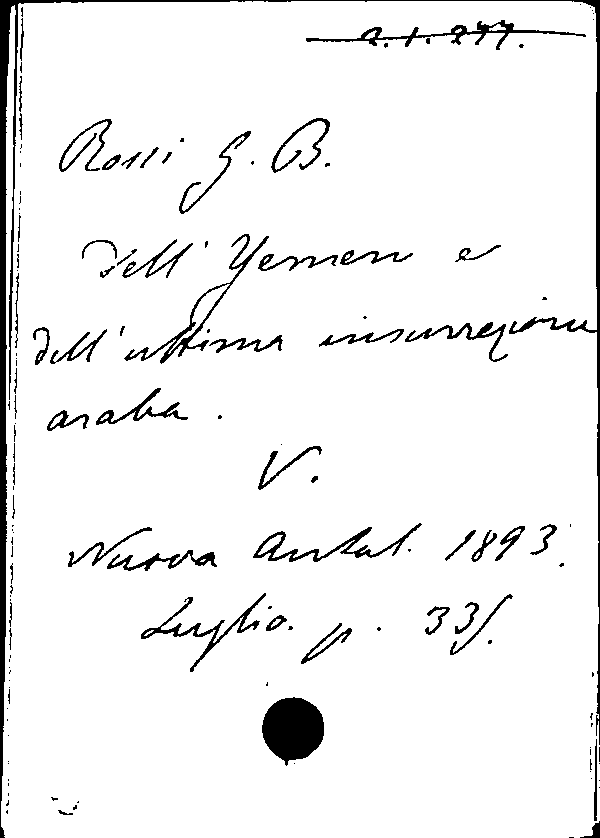 2.1.277.
Rossi G. B.
Dell' Yemen e
dell' ultima insurrezione
araba.
V.
Nuova Antol. 1893.
Luglio. p. 335.